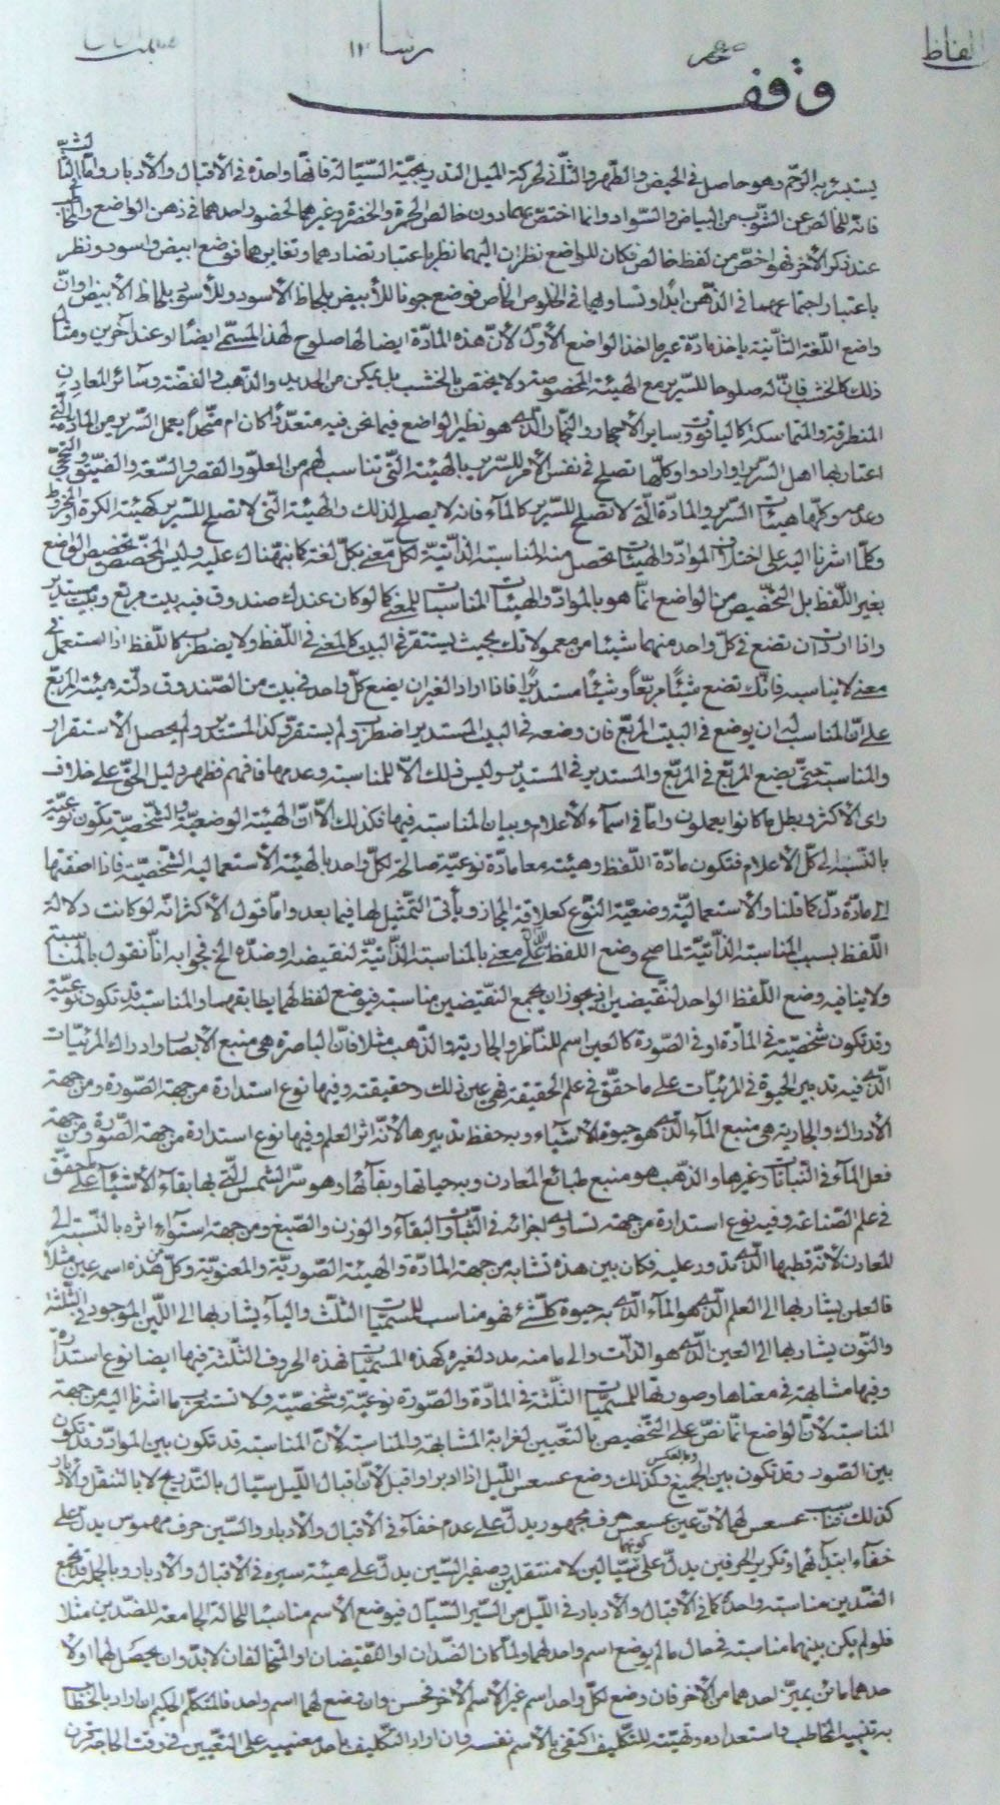 الفاظ رسا ١٢
وقف
يستبرء به الرحم وهو حاصل في الحيض والطهر والثلثى لحركة الميل التدريجية السيالة فانها واحدة في الاقبال والأدبار واما الثالث
فانه للخالص عن الشوب من البياض والسواد وانما اختص بهما دون خالص الحمرة والخضرة وغيرهما لحضور احدهما في ذهن الواضع والمخاطب
عند ذكر الأخر فهو اخص من لفظ خالص فكان للواضع نظران اليهما نظر باعتبار تضادهما وتغايرهما فوضع ابيض واسود ونظر
باعتبار اجتماعهما في الذهن ابدا وتساويهما في الخلوص الخاص فوضع جونا للأبيض بلحاظ الأسود وللأسود بلحاظ الأبيض او انّ
واضع اللغة الثانية ياخذ مادة غير ماخذ الواضع الأول لأن هذه المادة ايضا لها صلوح لهذا المسمى ايضا او عند آخرين ومثال
ذلك كالخشب فانّ له صلوحا للسرير مع الهيئة المخصوصة ولا يختص بالخشب بل يمكن من الحديد والذهب والفضة وسائر المعادن
المنطرقة والمتماسكة كالياقوت وساير الأحجار والنجار الذى هو نظير الواضع فيما نحن فيه متعددا كان ام متحدا يعمل السرير من المادة التى
اعتاد بها اهل السرير او ارادوا وكلها تصلح في نفس الأمر للسرير بالهيئة التى تناسب لهم من العلو والقصر والسعة والضيق
وعدمه وكلها هيئات السرير والمادة التى لا تصلح للسرير كالمآء فانه لا يصلح لذلك والهيئة التى لا تصلح للسرير كهيئة الكرة او المخروط
وكلما اشرنا اليه على اختلاف المواد والهيئات تحصل منه المناسبة الذاتية لكل معنى بكل لغة كما نبهناك عليه وليس المخصص تخصيص الوضع
بغير اللفظ بل التخصيص من الواضع انما هو بالمواد والهيئات المناسبات للمعنى كما لو كان عندك صندوق فيه بيت مربع وبيت مستدير
واذا اردت ان تضع في كل واحد منهما شيئا من معمولاتك بحيث يستقر في البيت كالمعنى في اللفظ ولا يضطرب كاللفظ اذا استعمل في
معنى لا يناسبه فانك تضع شيئا مربعا وشيئا مستديرا فاذا اراد الغير ان يضع كل واحد في بيت من الصندوق دلّته هيئة المربع
على انّ المناسب له ان يوضع في البيت المربع فان وضعه في البيت المستدير اضطرب ولم يستقر وكذا المستدير ولم يحصل الأستقرار
والمناسبة حتى يضع المربع في المربع والمستدير في المستدير وليس ذلك الّا للمناسبة وعدمها فافهم فظهر دليل الحق على خلاف
راى الأكثر وبطل ما كانوا يعملون وامّا في اسمآء الأعلام وبيان المناسبة فيها فكذلك الّا انّ الهيئة الوضعية والشخصية تكون نوعيّة
بالنسبة الى كل الأعلام فتكون مادة اللفظ وهيئته معا مادة نوعية صالحة لكل واحد بالهيئة الأستعمالية الشخصية فاذا اضفتها
الى مادة دلّ كما قلنا والأستعمالية وضعية النوع كعلاقة المجاز ويأتى التمثيل لها فيما بعد واما قول الأكثر انه لو كانت دلالة
اللفظ بسبب المناسبة الذاتية لما صح وضع اللفظ الدالّ على معنى بالمناسبة الذاتية لنقيضه او ضدّه الخ فجوابه انّا نقول بالمناسبة
ولا ينافيه وضع اللفظ الواحد لنقيضين اذ يجوز ان يجمع النقيضين مناسبة فيوضع لفظ لهما يطابقهما والمناسبة قد تكون نوعيّة
وقد تكون شخصية في المادة او في الصورة كالعين اسم للناظر والجارية والذهب مثلا فانّ الباصرة هى منبع الأبصار وادراك المرئيات
الذى فيه تدبير الحيوة في المرئيات على ما حقّق في علم الحقيقة فهى عين ذلك وحقيقته وفيها نوع استدارة من جهة الصورة ومن جهة
الأدراك والجارية هى منبع المآء الذى هو حيوة الأشيآء وبه حفظ تدبيرها لأنه اثر العلم وفيها نوع استدارة من جهة الصورة ومن جهة
فعل المآء في النباتات وغيرها والذهب هو منبع طبائع المعادن وبه حياتها وبقآئها وهو سرّ الشمس التى بها بقآء الأشيآء على ما حقق
في علم الصناعة وفيه نوع استدارة من جهة تساوى اجزائه في الثبات والبقآء والوزن والصبغ ومن جهة استوآء اثره بالنسبة الى
المعادن لأنه قطبها الذى تدور عليه فكان بين هذه تشابه من جهة المادة والهيئة الصورية والمعنوية وكل من هذه اسمه عين مثلا
فالعين يشار بها الى العلم الذى هو المآء الذى به حيوة كل شئ فهو مناسب للمسميات الثلث واليآء يشار بها الى اللين الموجود في الثلثة
والنون يشار بها الى العين الذى هو الذات والى ما منه مدد لغيره كهذه المسميات فهذه الحروف الثلثة فيها ايضا نوع استدارة
وفيها مشابهة في معناها وصورتها للمسميات الثلثة في المادة والصورة نوعية وشخصية ولا تستغرب ما اشرنا اليه من جهة
المناسبة لأنّ الواضع انّما نصّ على التخصيص بالتعيين لغرابة المشابهة والمناسبة لأنّ المناسبة قد تكون بين المواد وقد تكون
بين الصور وقد تكون بين الجميع وبالعكس وكذلك وضع عسعس الليل اذا ادبر او اقبل لأنّ اقبال الليل سيّال بالتدريج لا بالتنقل والأدبار
كذلك فناسب عسعس لهما لأنّ عين عسعس حرف مجهور يدلّ على عدم خفآء في الاقبال والأدبار والسين حرف مهموس يدلّ على
خفآء ابتدآئهما وتكرير الحرفين يدلّ على كونهما سيّالين لا منتقلين وصفير السين يدلّ على هيئة سيره في الأقبال والأدبار وبالجملة قد تجمع
الضدين مناسبة واحدة كما في الأقبال والأدبار في الليل من السير السيّال فيوضع الأسم مناسبا للحالة الجامعة للضدين مثلا
فلو لم يكن بينهما مناسبة في حال ما لم يوضع اسم واحد لهما ولما كان الضدان او النقيضان او المتخالفان لا بدّ وان يحصل لهما او لا
حدهما مائز يميز احدهما من الأخر فان وضع لكل واحد اسم غير الأسم الأخر فحسن وان وضع لهما اسم واحد فالمتكلم الحكيم ان اراد بالخطاب
به تنبيه المخاطب واستعداده وتهيئته للتكليف اكتفى بالأسم نفسه وان اراد التكليف باحد معنييه على التعيين في وقت الحاجة قرن